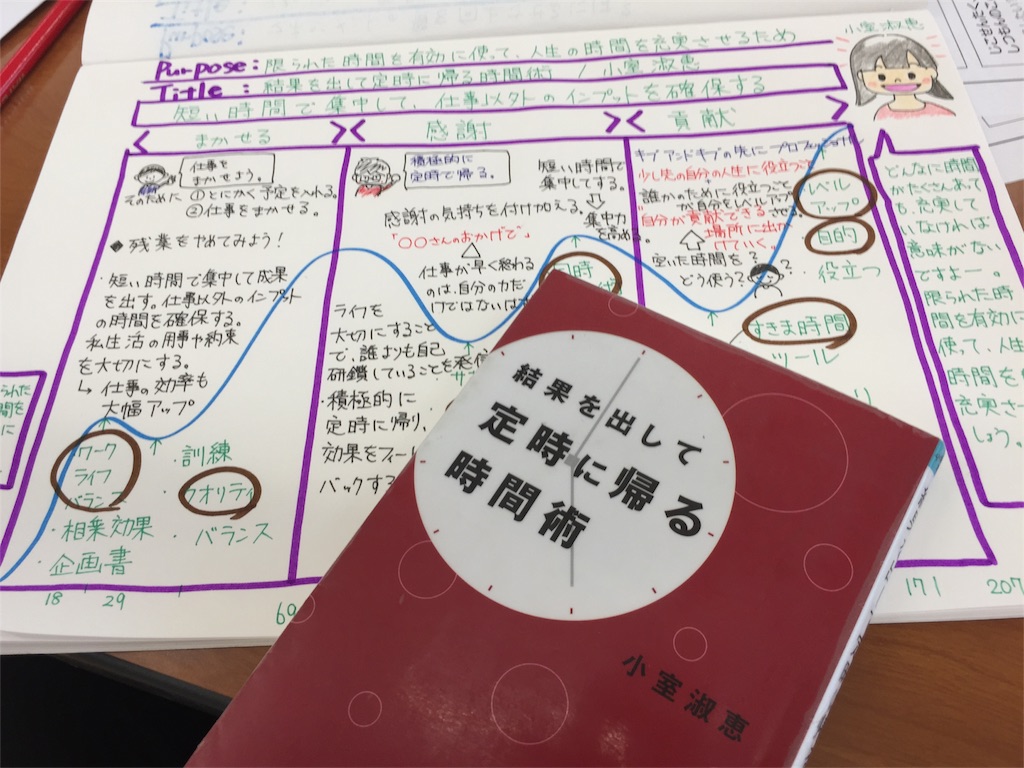 小室淑恵
Purpose: 限られた時間を有効に使って、人生の時間を充実させるため
Title : 結果を出して定時に帰る時間術 / 小室淑恵
短い時間で集中して、仕事以外のインプットを確保する
まかせる
感謝
貢献
仕事を
まかせよう。
そのために ①とにかく予定を入れる。
②仕事をまかせる。
◆残業をやめてみよう！
・短い時間で集中して成果
を出す。仕事以外のインプット
の時間を確保する。
私生活の用事や約束
を大切にする。
↳ 仕事の効率も
大幅アップ
ワーク
ライフ
バランス
・訓練
クオリティ
・相乗効果
・バランス
企画書
積極的に
定時で帰る。
短い時間で
集中してする。
⇩
集中力
を高める。
感謝の気持ちを付け加える。
「〇〇さんのおかげで」
仕事が早く終わる
のは、自分の力だ
けではないはず
ライフを
大切にすること
で、誰よりも自己
研鑽していることを
・積極的に
定時に帰り、
効果をフィー
バックする
ギブアンドギブの先に
少し先の自分の人生に役立つこと
誰かのために役立つこと
が自分をレベルアップ
させる。
自分が貢献できる
場所に出か
けていく。
空いた時間を？
どう使う？
レベル
アップ
目的
・役立つ
すきま時間
ツール
どんなに時間
がたくさんあって
も、充実して
いなければ
意味がない
ですよー。
限られた時
間を有効に
使って、人生
時間を
充実さ
しょう。
られた
間を
に
18
29
69
171
207
結果を出して
定時に帰る
時間術
小室淑恵